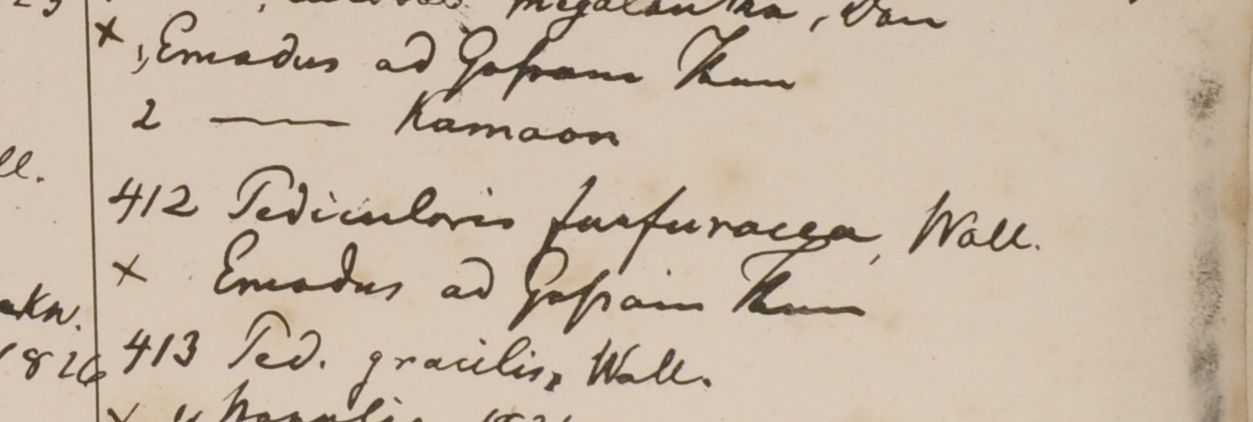 megalantha, Don
x 1, Emodus ad Gossam Than
2 —— Kamaon
ll.
412 Pedicularis furfuracea, Wall.
x Emodus ad Gossain Than
akn.
1826
413 Ped. gracilis, Wall.
x